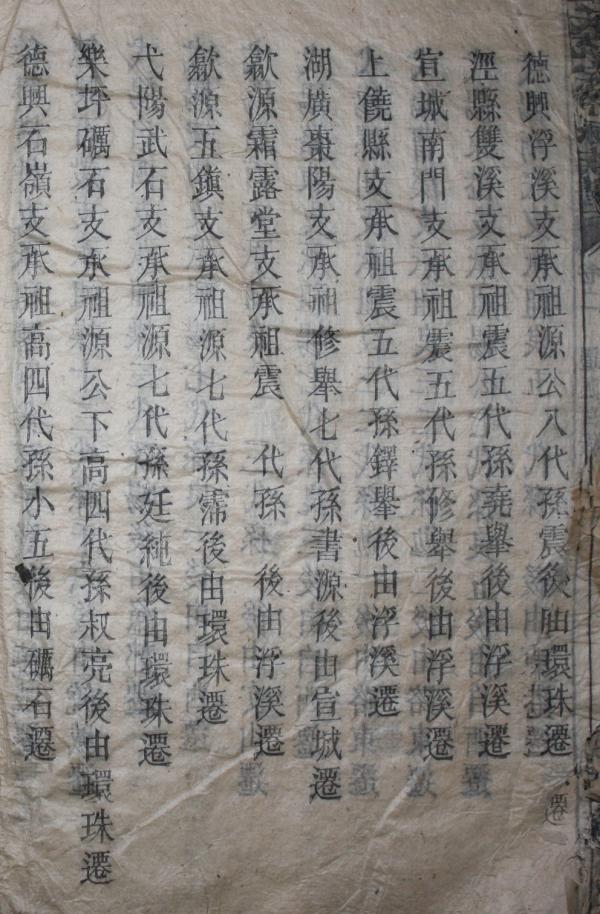 德興浮溪支承祖源公入代孫震後由環珠遷
涇縣雙溪支承祖震五代孫堯舉後由浮溪遷
宣城南門支承祖震五代孫修舉後由浮溪遷
上饒縣支承祖震五代孫鐸舉後由浮溪遷
湖廣棗陽支承祖修舉七代孫書源後由宣城遷
歙源霜露堂支承祖震 代孫 後由浮溪遷
歙源五鎮支承祖源七代孫霈後由環珠遷
弋陽武石支承祖源七代孫廷純後由環珠遷
樂坪礪石支承祖源公下高四代孫叔亮後由環珠遷
德興石嶺支承祖高四代孫小五後由礪石遷